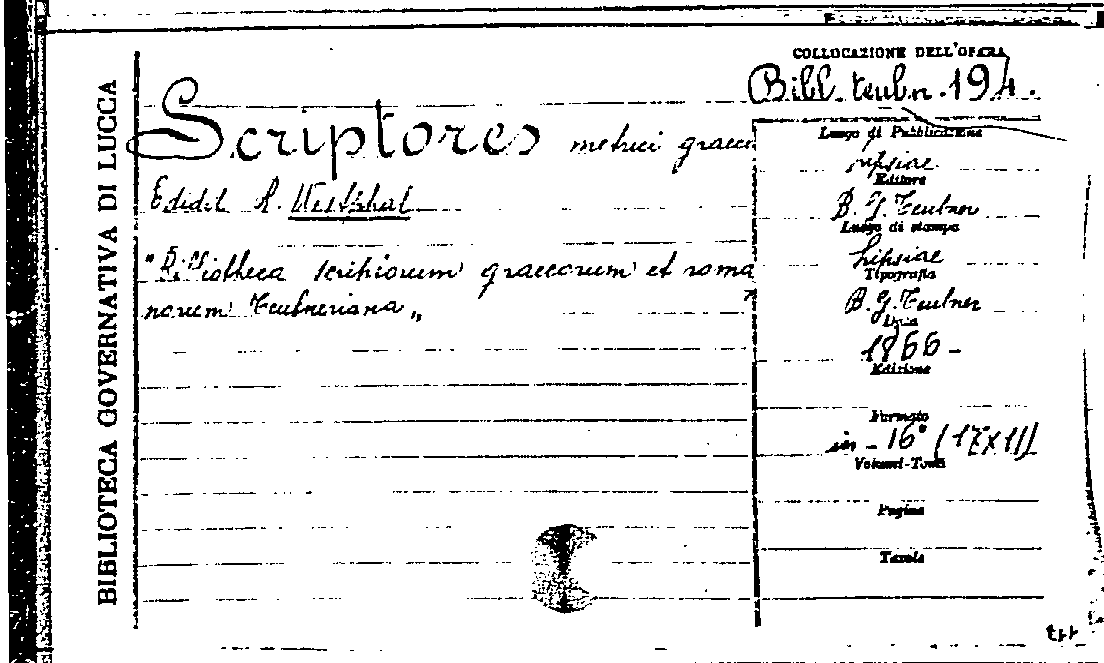 BIBLIOTECA GOVERNATIVA DI LUCCA
COLLOCAZIONE DELL'OPERA
Bibl. teubn. 194.
Scriptores metrici graeci
Edidit R. Westphal
"Bibliotheca scriptorum graecorum et roma
norum Teubneriana„
Luogo di Pubblicazione
Lipsiae
Editore
B. G. Teubner
Luogo di stampa
Lipsiae
Tipografia
B. G. Teubner
Data
1866 -
Edizione
Formato
in - 16° (17x11)
Volumi-Tomi
Pagine
Tavole